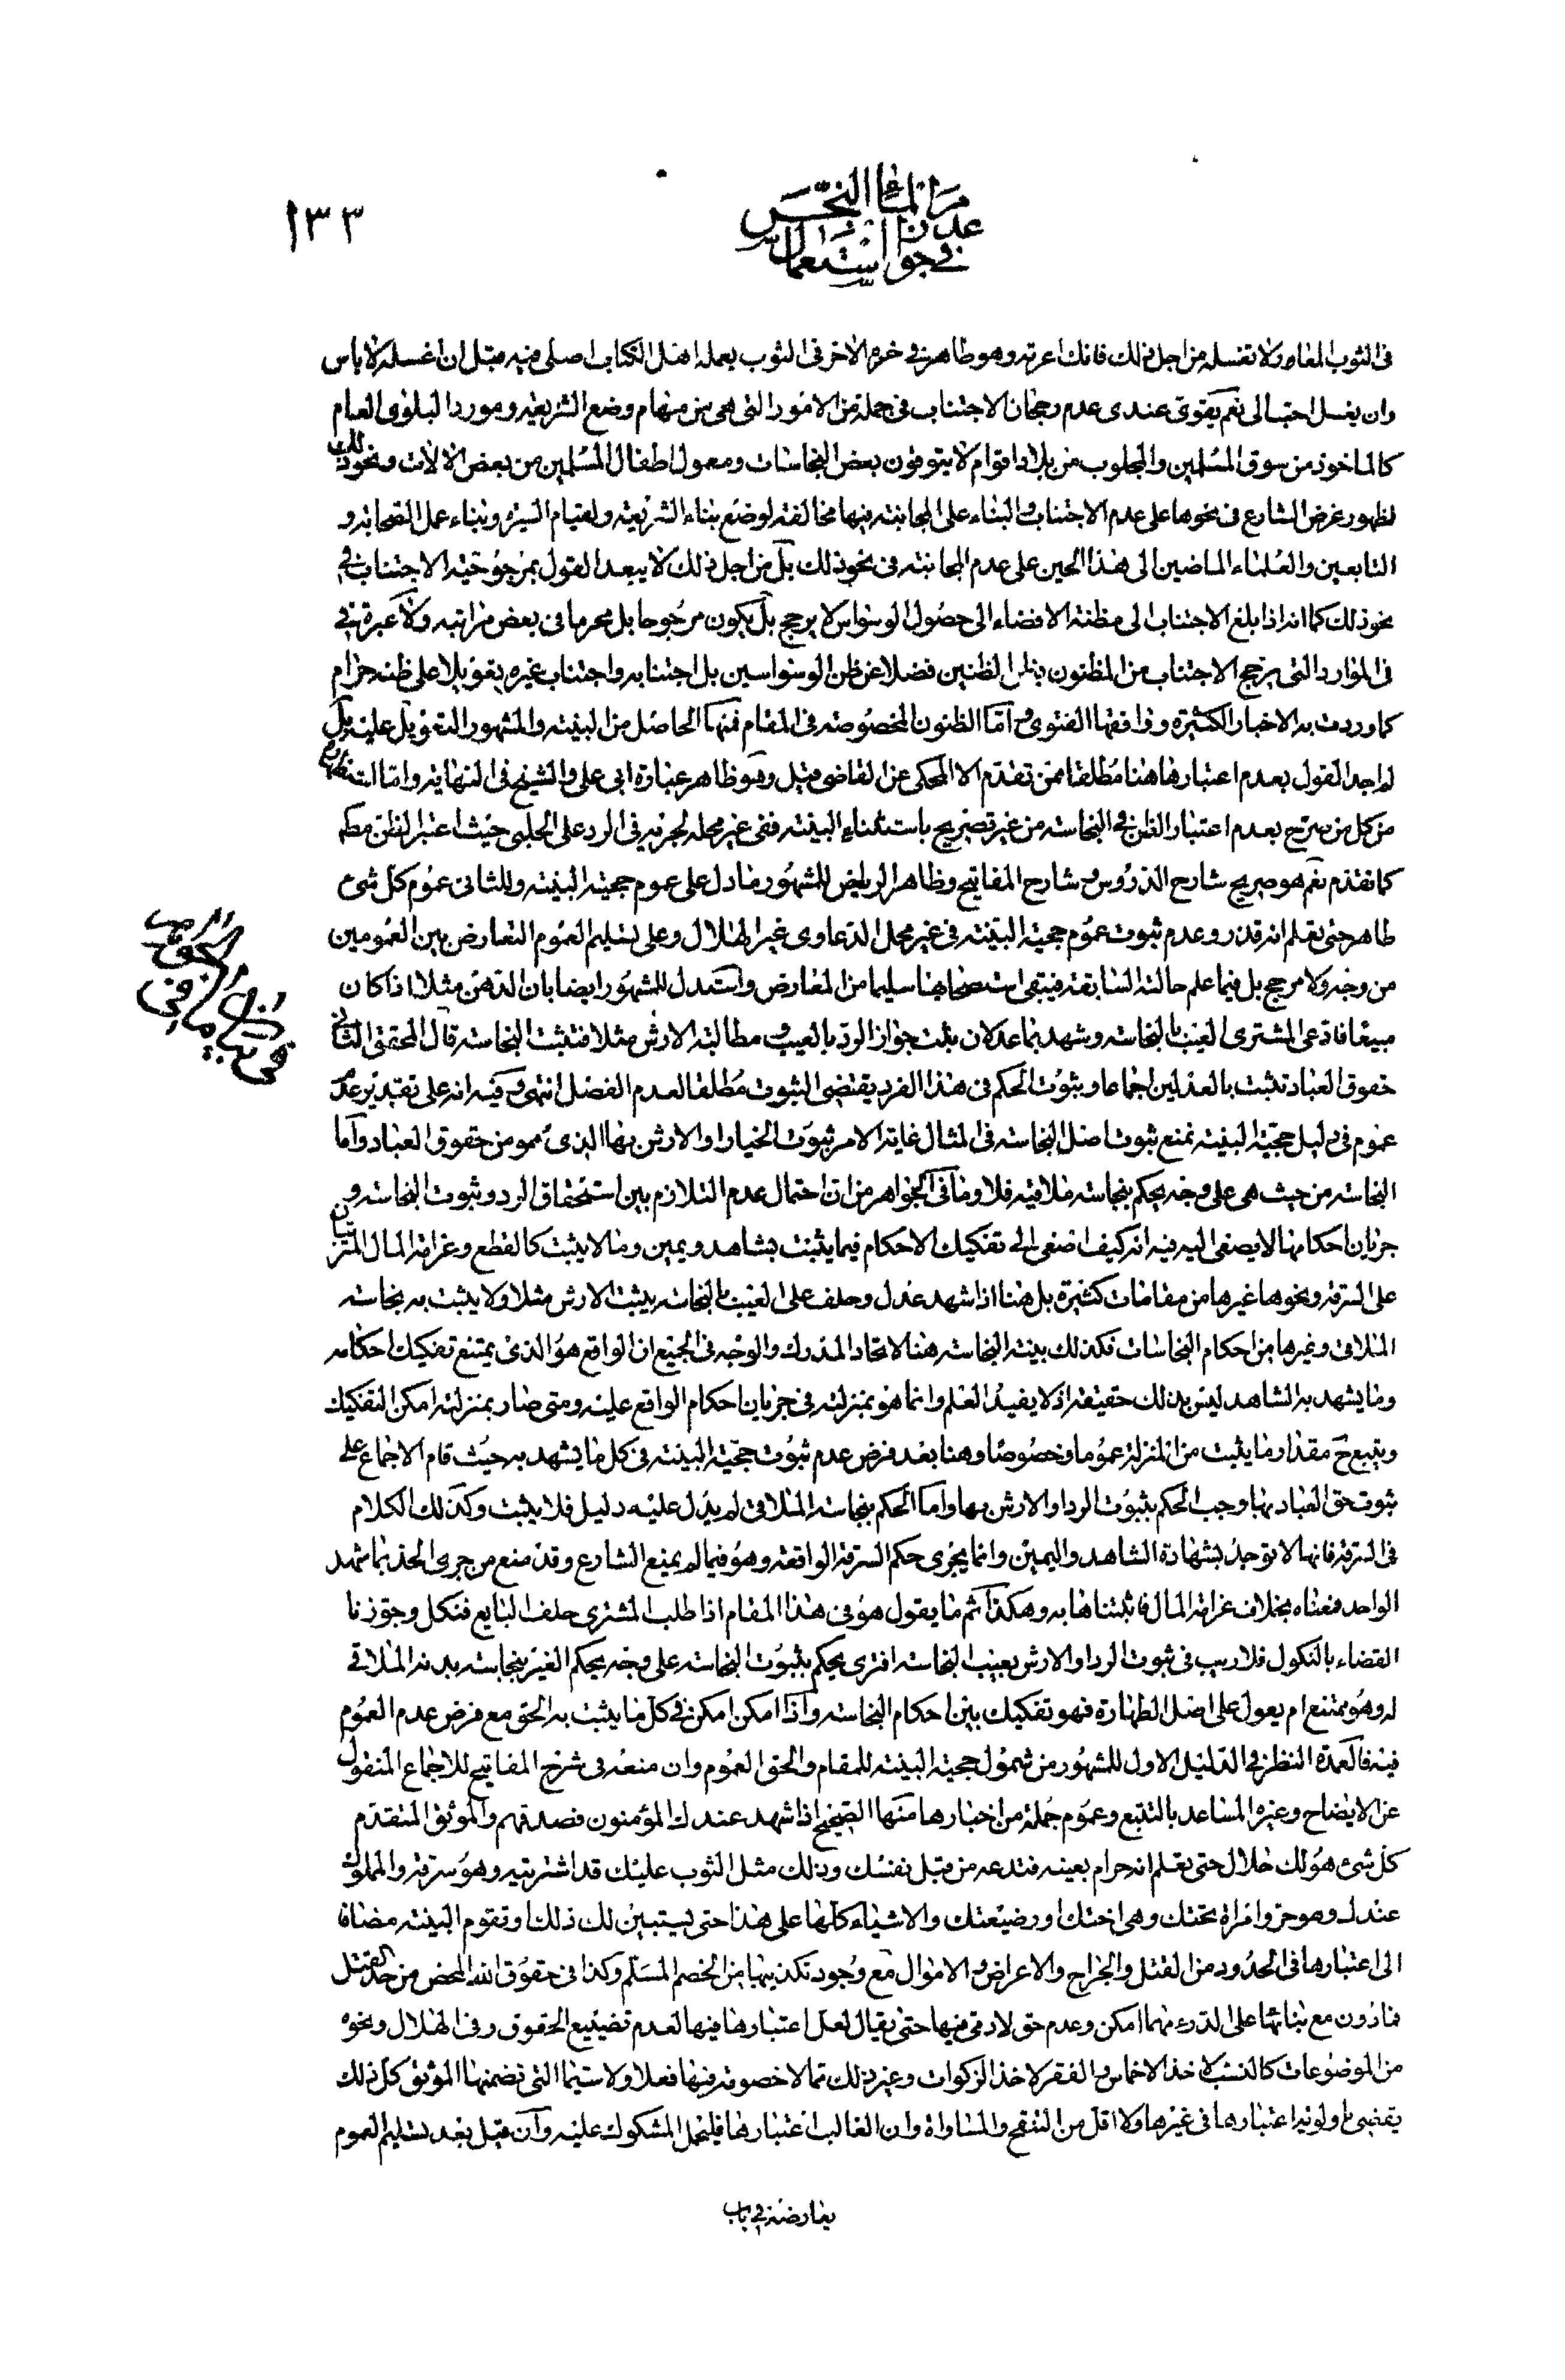 ١٣٣
عدم
في جواز استعمال الماء النجس
في الثوب المعار ولا تغسله من اجل ذلك فانك اعرته وهو طاهر في خرم الاخر في الثوب يعمله اهل الكتاب اصلى فيه قبل ان اغسله لا باس
وان يغسل احب الى نعم يقوى عندى عدم رجحان الاجتناب في جملة من الامور التى هى من مهام وضع الشريعة ومورد البلوى العام
كالماخوذ من سوق المسلمين والمجلوب من بلاد اقوام لا يتوقون بعض النجاسات ومعمول اطفال المسلمين من بعض الالات ونحو ذلك
لظهور غرض الشارع في نحوها على عدم الاجتناب والبناء على المجانبة فيها مخالفة لوضع بناء الشريعة ولقيام السيرة وبناء عمل الصحابة و
التابعين والعلماء الماضين الى هذا الحين على عدم المجانبة في نحو ذلك بل من اجل ذلك لا يبعد القول بمرجوحية الاجتناب في
نحو ذلك كما انه اذا بلغ الاجتناب الى مظنة الافضاء الى حصول الوسواس لا يرجح بل يكون مرجوحا بل محرما في بعض مراتبه ولا عبرة في
في الموارد التى يرجح الاجتناب من المظنون بظن الظنين فضلا عن ظن الوسواسين بل اجتنابه واجتناب غيره تعويلا على ظنه حرام
كما وردت به الاخبار الكثيرة ووافقها الفتوى واما الظنون المخصوصة في المقام فمنها الحاصل من البينة والمشهور التعويل عليه بل
لم اجد القول بعدم اعتبارها هنا مطلقا ممن تقدم الا المحكى عن القاضى قيل وهو ظاهر عبارة ابى على والشيخ في النهاية واما استظهاره
من كل من صرح بعدم اعتبار الظن في النجاسة من غير تصريح باستثناء البينة ففى غير محله لجريه في الرد على الحلبى حيث اعتبر الظن مطم
كما تقدم نعم هو صريح شارح الدروس وشارح المفاتيح وظاهر الرياض للمشهور ما دل على عموم حجية البينة وللثانى عموم كل شئ
طاهر حتى تعلم انه قذر وعدم ثبوت عموم حجية البينة في غير محل الدعاوى غير الهلال وعلى تسليم العموم التعارض بين العمومين
من وجه ولا مرجح بل فيما علم حالته السابقة فيبقى استصحابها سليما من المعارض واستدل للمشهور ايضا بان الدهن مثلا اذا كان
مبيعا فادعى المشترى العيب بالنجاسة وشهد بها عدلان يثبت جواز الرد بالعيب ومطالبة الارش مثلا فتثبت النجاسة قال المحقق الثانى
حقوق العباد تثبت بالعدلين اجماعا وثبوت الحكم في هذا الفرد يقتضى الثبوت مطلقا لعدم الفصل انتهى وفيه انه على تقدير عدم
عموم في دليل حجية البينة نمنع ثبوت اصل النجاسة في المثال غاية الامر ثبوت الخيار او الارش بها الذى هو من حقوق العباد واما
النجاسة من حيث هى على وجه يحكم بنجاسة ملاقيه فلا وما في الجواهر من ان احتمال عدم التلازم بين استحقاق الرد وثبوت النجاسة و
جريان احكامها لا يصغى اليه فيه انه كيف اصغى الى تفكيك الاحكام فيما يثبت بشاهد ويمين وما لا يثبت كالقطع وغرامة المال المترتبان
على السرقة ونحوها غيرها من مقامات كثيرة بل هنا اذا شهد عدل وحلف على العيب بالنجاسة يثبت الارش مثلا ولا يثبت به نجاسة
الملاقى وغيرها من احكام النجاسات فكذلك بينة النجاسة هنا لاتحاد المدرك والوجه في الجميع ان الواقع هو الذى يمتنع تفكيك احكامه
وما يشهد به الشاهد ليس بذلك حقيقة اذ لا يفيد العلم وانما هو بمنزلته في جريان احكام الواقع عليه ومتى صار بمنزلته امكن التفكيك
ويتبع ح مقدار ما يثبت من المنزلة عموما وخصوصا وهنا بعد فرض عدم ثبوت حجية البينة في كل ما يشهد به حيث قام الاجماع على
ثبوت حق العباد بها وجب الحكم بثبوت الرد او الارش بها واما الحكم بنجاسة الملاقى لم يدل عليه دليل فلا يثبت وكذلك الكلام
في السرقة فانها لا توجد بشهادة الشاهد واليمين وانما يجرى حكم السرقة الواقعة وهو فيما لم يمنع الشارع وقد منع من جرى الحد بما شهد
الواحد منعناه بخلاف غرامة المال فاثبتناها به وهكذا ثم ما يقول هو في هذا المقام اذا طلب المشترى حلف البايع فنكل وجوزنا
القضاء بالنكول فلا ريب في ثبوت الرد او الارش بعيب النجاسة افترى يحكم بثبوت النجاسة على وجه يحكم الغير بنجاسة بدنه الملاقى
له وهو ممتنع ام يعول على اصل الطهارة فهو تفكيك بين احكام النجاسة واذا امكن امكن في كل ما يثبت به الحق مع فرض عدم العموم
فيه فالعمدة النظر في الدليل الاول للمشهور من شمول حجية البينة للمقام والحق العموم وان منعه في شرح المفاتيح للاجماع المنقول
عن الايضاح وغيره المساعد بالتتبع وعموم جملة من اخبارها منها الصحيح اذا شهد عندك المؤمنون فصدقهم والموثق المتقدم
كل شئ هو لك حلال حتى تعلم انه حرام بعينه فتدعه من قبل نفسك وذلك مثل الثوب عليك قد اشتريته وهو سرقة والمملوك
عندك وهو حر وامراة تحتك وهى اختك او رضيعتك والاشياء كلها على هذا حتى يستبين لك ذلك او تقوم البينة مضافا
الى اعتبارها في الحدود من القتل والجراح والاعراض والاموال مع وجود تكذيبها من الخصم المسلم وكذا في حقوق الله المحض من حد القتل
فما دون مع بنائها على الدرء مهما امكن وعدم حق لادمى فيها حتى يقال لعل اعتبارها فيها لعدم تضييع الحقوق وفى الهلال ونحوه
من الموضوعات كالنسب لاخذ الاخماس والفقر لاخذ الزكوات وغير ذلك مما لا خصومة فيها فعلا ولا سيما التى تضمنها الموثق كل ذلك
يقضى باولوية اعتبارها في غيرها ولا اقل من التنقيح والمساواة وان الغالب اعتبارها فليحمل المشكوك عليه وان قيل بعد تسليم العموم
في
يعارضه في باب